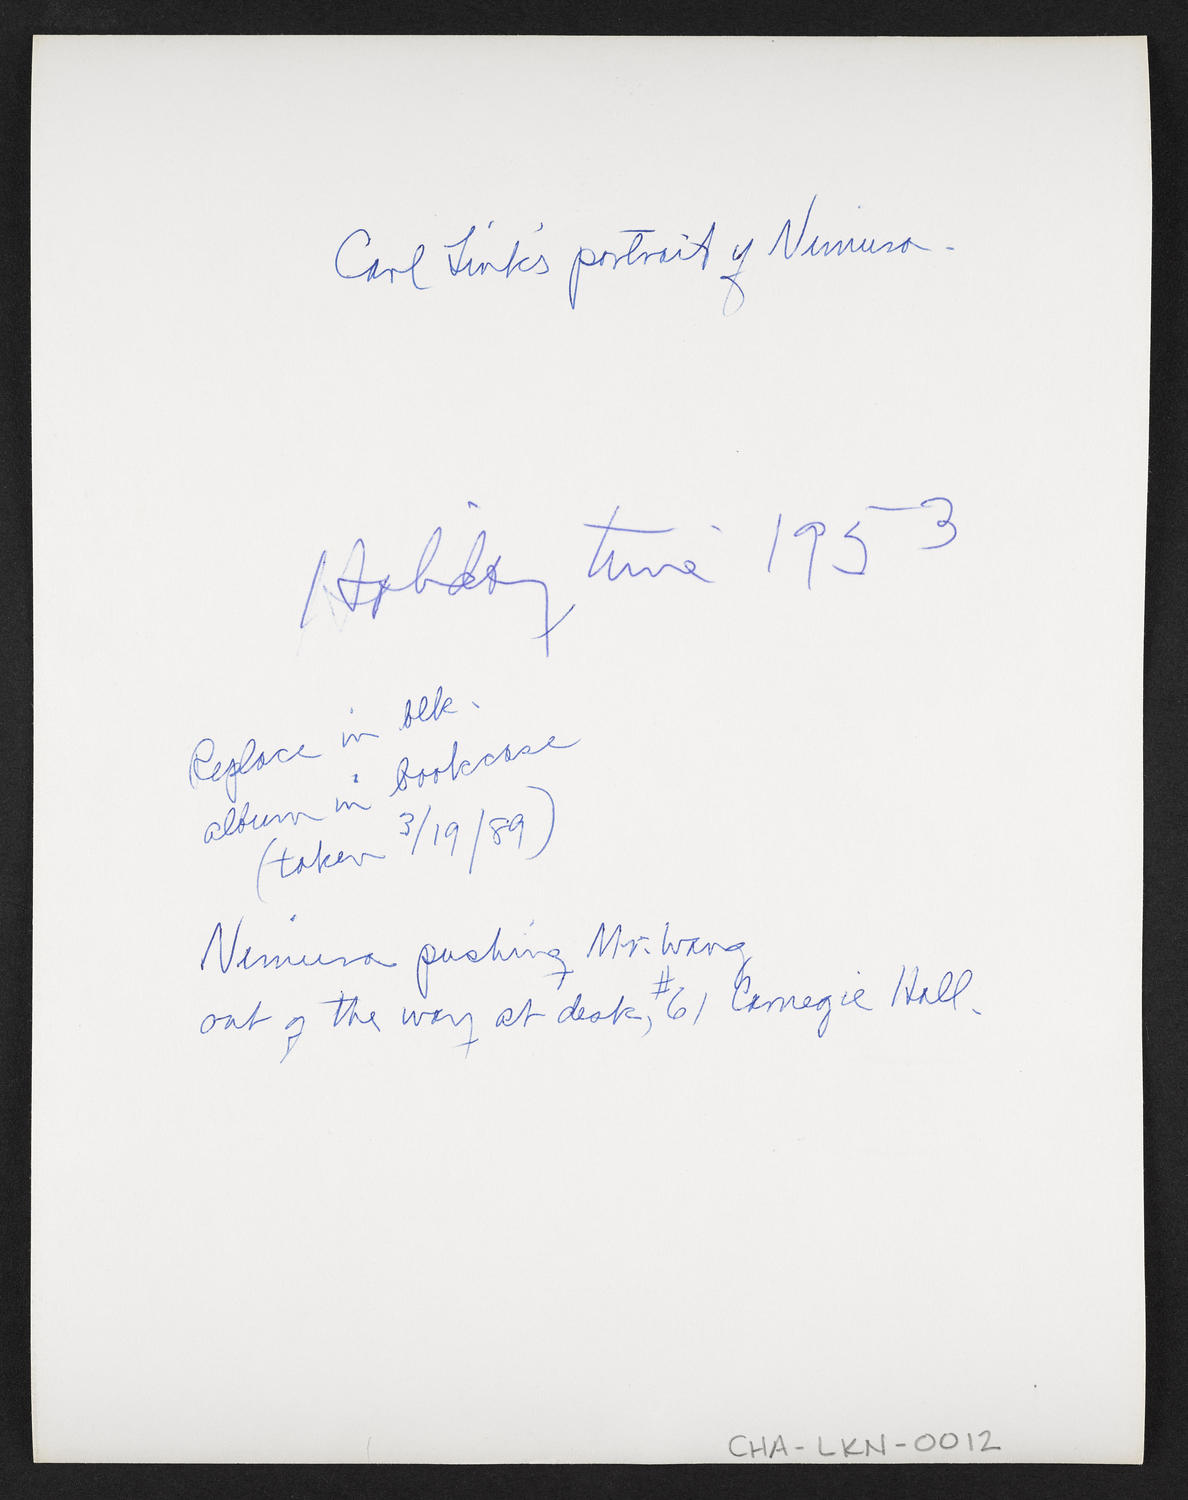 Carl Link's portrait of Nimura.
Holiday time 1953
Replace in blk.
album in bookcase
(taken 3/19/89)
Nimura pushing Mr. Wang
out of the way at desk, #61 Carnegie Hall.
CHA-LKN-0012